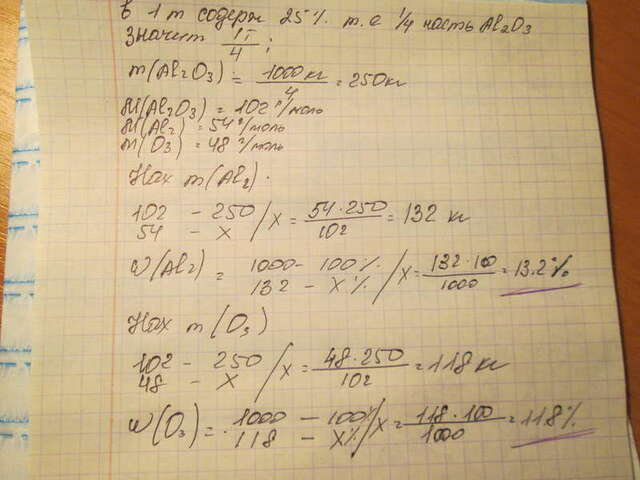 в 1 т содерж 25% т.е 1/4 часть Al2O3
Значит 1т/4;
m(Al2O3) = 1000кг/4 = 250кг
M(Al2O3) = 102 г/моль
M(Al2) = 54 г/моль
m(O3) = 48 г/моль
Нах m(Al2).
102 - 250 / x = 54·250/102 = 132 кг
54 - x
W(Al2) = 1000 - 100% / x = 132·100/1000 = 13.2%
132 - x%
Нах m(O3)
102 - 250 / x = 48·250/102 = 118 кг
48 - x
W(O3) = 1000 - 100% / x = 118·100/1000 = 11.8%
118 - x%